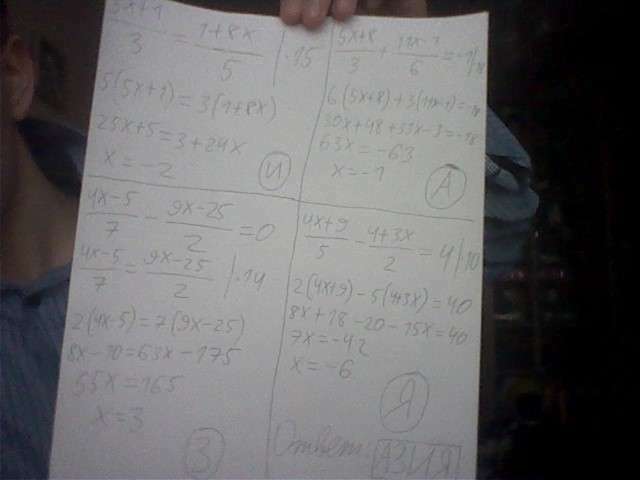 5x+1/3 = 1+8x/5 | ·15
5(5x+1)=3(1+8x)
25x+5=3+24x
x=-2
И
5x+8/3 + 11x-1/6 = -1 |·18
6(5x+8)+3(11x-1)=-18
30x+48+33x-3=-18
63x=-63
x=-1
А
4x-5/7 - 9x-25/2 =0
4x-5/7 = 9x-25/2 | ·14
2(4x-5)=7(9x-25)
8x-10=63x-175
55x=165
x=3
З
4x+9/5 - 4+3x/2 = 4 |·10
2(4x+9)-5(4+3x)=40
8x+18-20-15x=40
7x=-42
x=-6
Я
Ответ: АЗИЯ